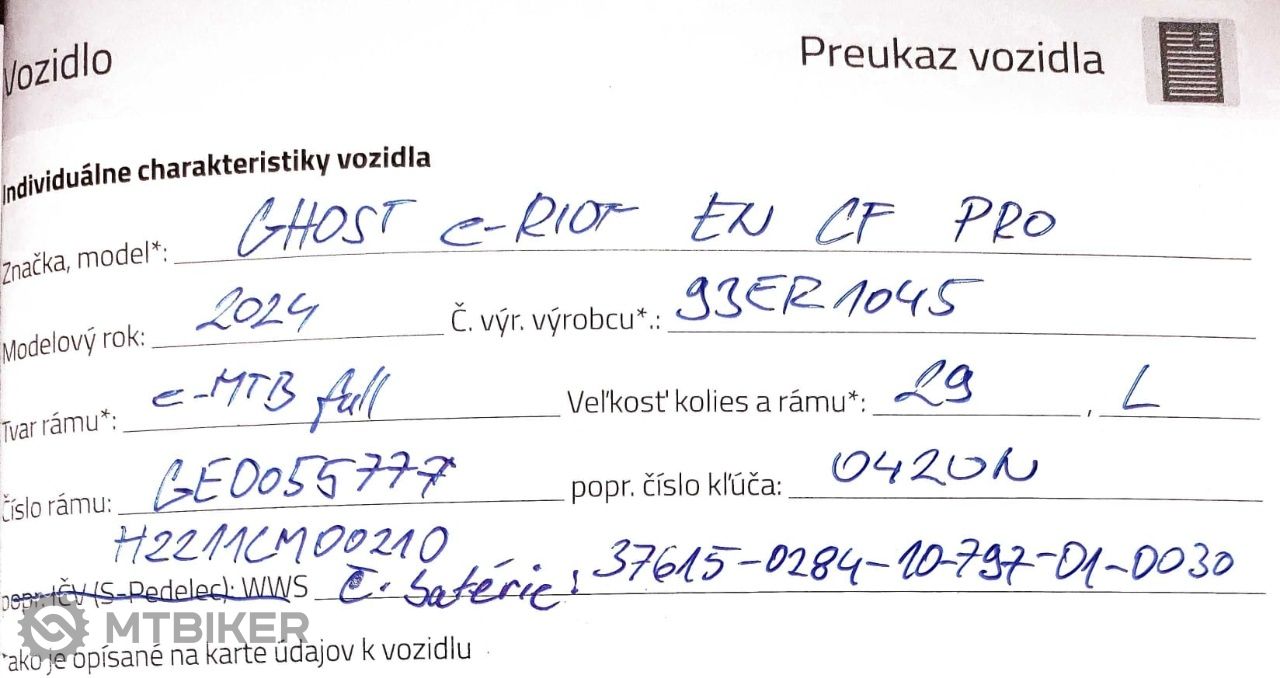 Vozidlo
Preukaz vozidla
Individuálne charakteristiky vozidla
Značka, model*: GHOST e-RIOT EN CF PRO
Modelový rok: 2024 Č. výr. výrobcu*.: 93ER1045
Tvar rámu*: e-MTB full Veľkosť kolies a rámu*: 29, L
číslo rámu: GED055777 popr. číslo kľúča: 042UN
H2211CM00210
popr. IČV (S-Pedelec): WWS Č. batérie: 37615-0284-10-797-01-0030
MTBIKER
*ako je opísané na karte údajov k vozidlu